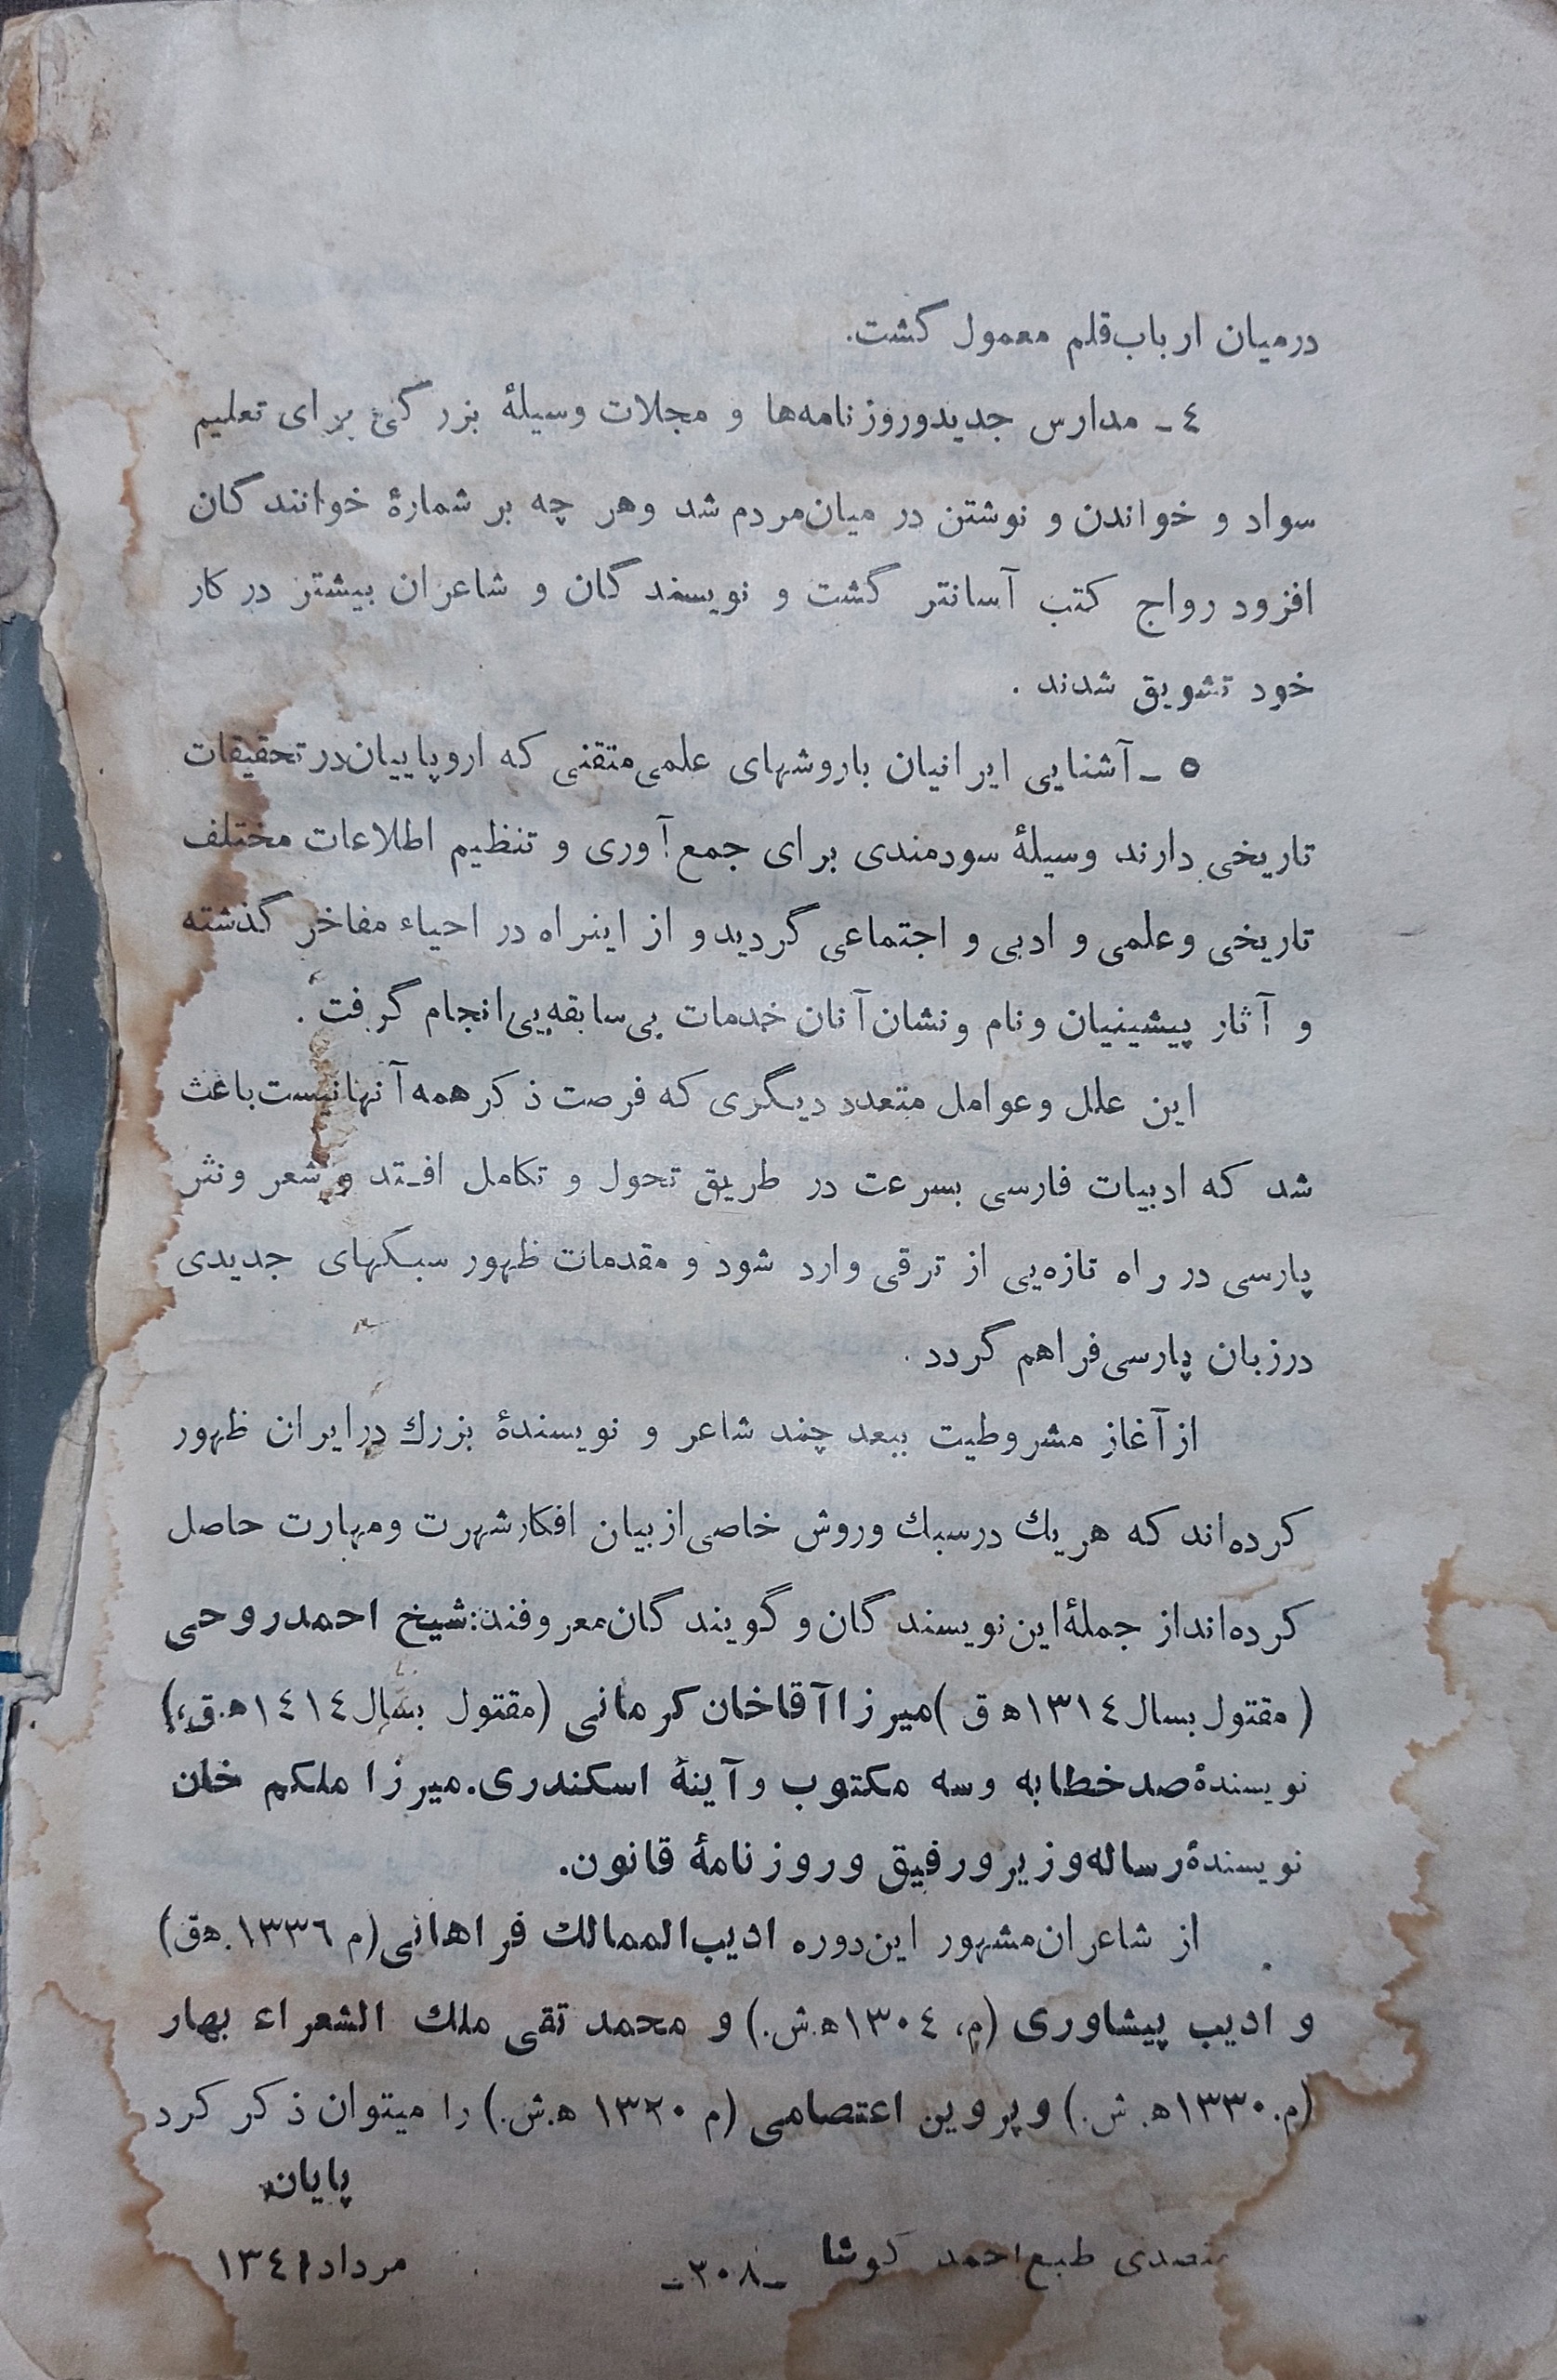 درمیان ارباب‌قلم معمول گشت.
٤ ـ مدارس جدیدوروزنامه‌ها و مجلات وسیلهٔ بزرگی برای تعلیم
سواد و خواندن و نوشتن در میان‌مردم شد وهر چه بر شمارهٔ خوانندگان
افزود رواج کتب آسانتر گشت و نویسندگان و شاعران بیشتر در کار
خود تشویق شدند .
٥ ـ آشنایی ایرانیان باروشهای علمی‌متقنی که اروپاییان‌در تحقیقات
تاریخی دارند وسیلهٔ سودمندی برای جمع‌آوری و تنظیم اطلاعات مختلف
تاریخی وعلمی و ادبی و اجتماعی گردید و از اینراه در احیاء مفاخر گذشته
و آثار پیشینیان ونام ونشان‌آنان خدمات بی‌سابقه‌یی‌انجام گرفت .
این علل وعوامل متعدد دیگری که فرصت ذکر همه آنهانیست‌باعث
شد که ادبیات فارسی بسرعت در طریق تحول و تکامل افـتد و شعر ونثر
پارسی در راه تازه‌یی از ترقی وارد شود و مقدمات ظهور سبکهای جدیدی
درزبان پارسی‌فراهم گردد .
ازآغاز مشروطیت ببعد چند شاعر و نویسندهٔ بزرك درایران ظهور
کرده‌اند که هریك درسبك وروش خاصی‌ازبیان افکارشهرت ومهارت حاصل
کرده‌انداز جملهٔ‌این‌نویسندگان و گویندگان‌معروفند:شیخ احمدروحی
( مقتول‌بسال ۱۳۱٤ه ق )میرزاآقاخان‌کرمانی (مقتول بسال ۱٤۱٤ه.ق.)
نویسندهٔ‌صدخطابه وسه مکتوب وآینهٔ اسکندری.میرزا ملکم خان
نویسندهٔ‌رساله‌وزیرورفیق وروزنامهٔ قانون.
از شاعران‌مشهور این‌دوره ادیب‌الممالك فراهانی(م ۱۳۳٦.هق)
و ادیب پیشاوری (م، ۱۳۰٤ه.ش.) و محمد تقی ملك الشعراء بهار
(م.۱۳۳۰ه. ش.) وپروین اعتصامی (م ۱۳۲۰ ه.ش.) را میتوان ذکر کرد
پایان
متصدی طبع‌احمد کوشا
ـ۳۰۸ـ
مرداد۱۳٤۱